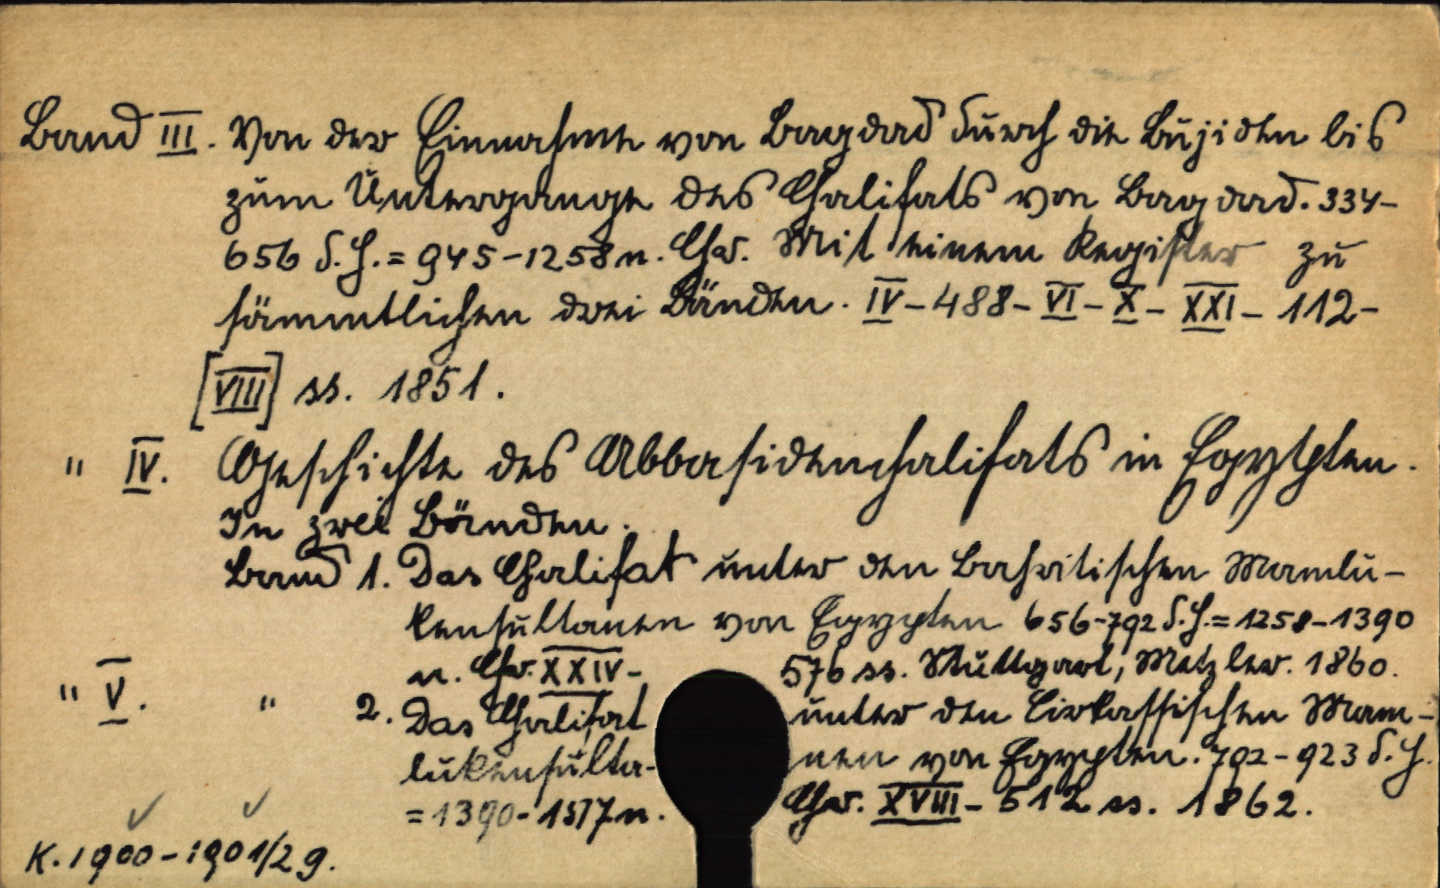 Band III. Von der Einnahme von Bagdad durch die Bujiden bis
zum Untergange des Chalifats von Bagdad. 334-
656 d. H. = 945-1258 n. Chr. Mit einem Register zu
sämmtlichen drei Bänden. IV-488-VI-X-XXI-112-
[VIII] ss. 1851.
" IV. Geschichte des Abbasidenchalifats in Egypten.
In zwei Bänden.
Band 1. Das Chalifat unter den Bahritischen Mamlu-
kensultanen von Egypten 656-792 d. H. = 1258-1390
n. Chr. XXIV- 576 ss. Stuttgart, Metzler. 1860.
" V. " 2. Das Chalifat unter den Cirkassischen Mam-
lukensulta- nen von Egypten. 792-923 d. H.
= 1390-1517 n. Chr. XVIII- 512 ss. 1862.
K. 1900-1901/29.